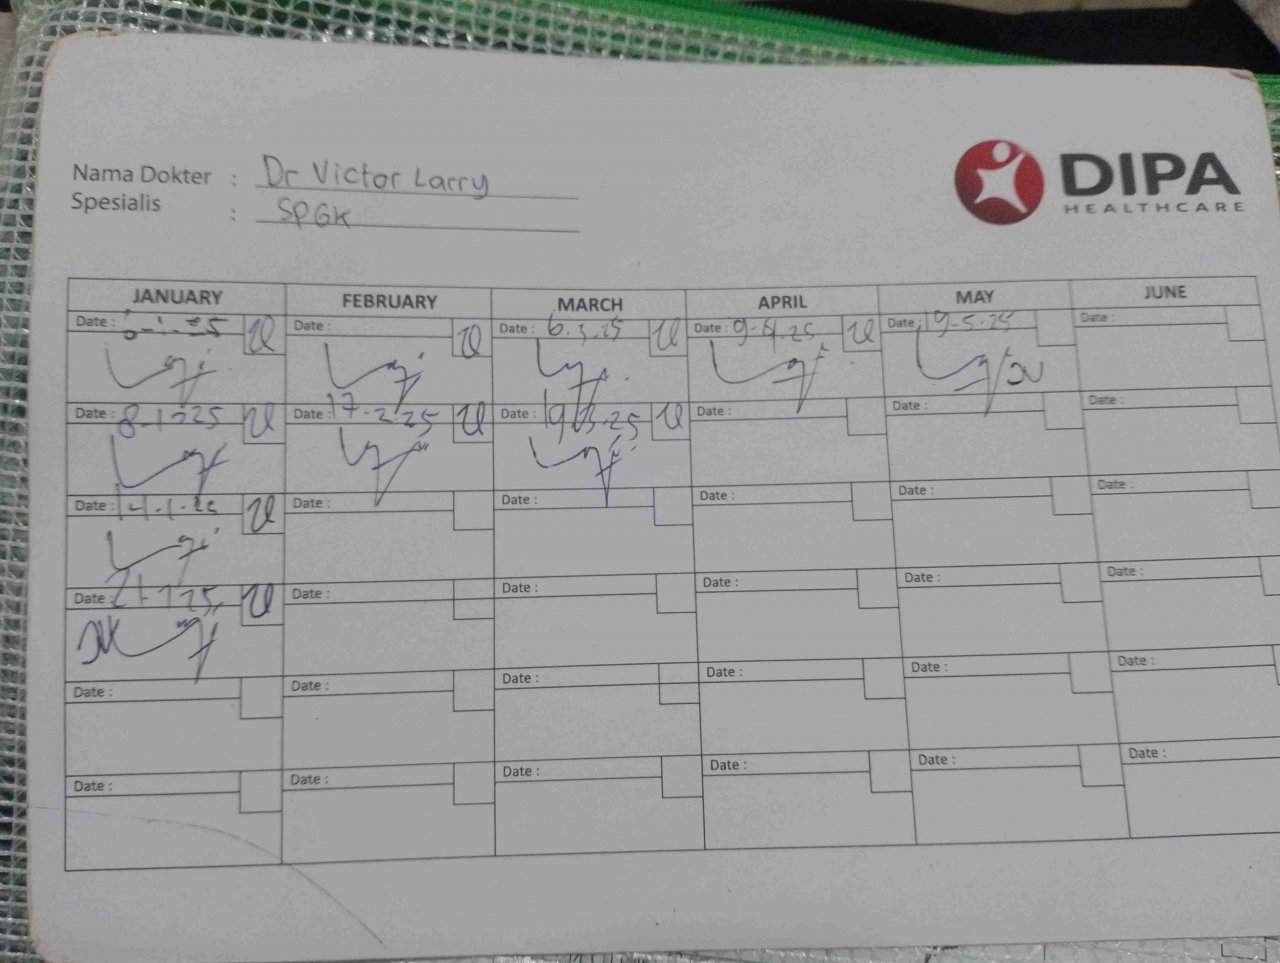 Nama Dokter : Dr Victor Larry
Spesialis : SPGK
DIPA
HEALTHCARE
JANUARY FEBRUARY MARCH APRIL MAY JUNE
Date : 6-1-25 Date : Date : 6.3.25 Date : 9-4.25 Date : 19-5-25 Date :
Date : 8-1-25 Date : 17-2-25 Date : 19.3.25 Date : Date : Date :
Date : 14-1-25 Date : Date : Date : Date : Date :
Date : 21-1-25 Date : Date : Date : Date : Date :
Date : Date : Date : Date : Date : Date :
Date : Date : Date : Date : Date : Date :